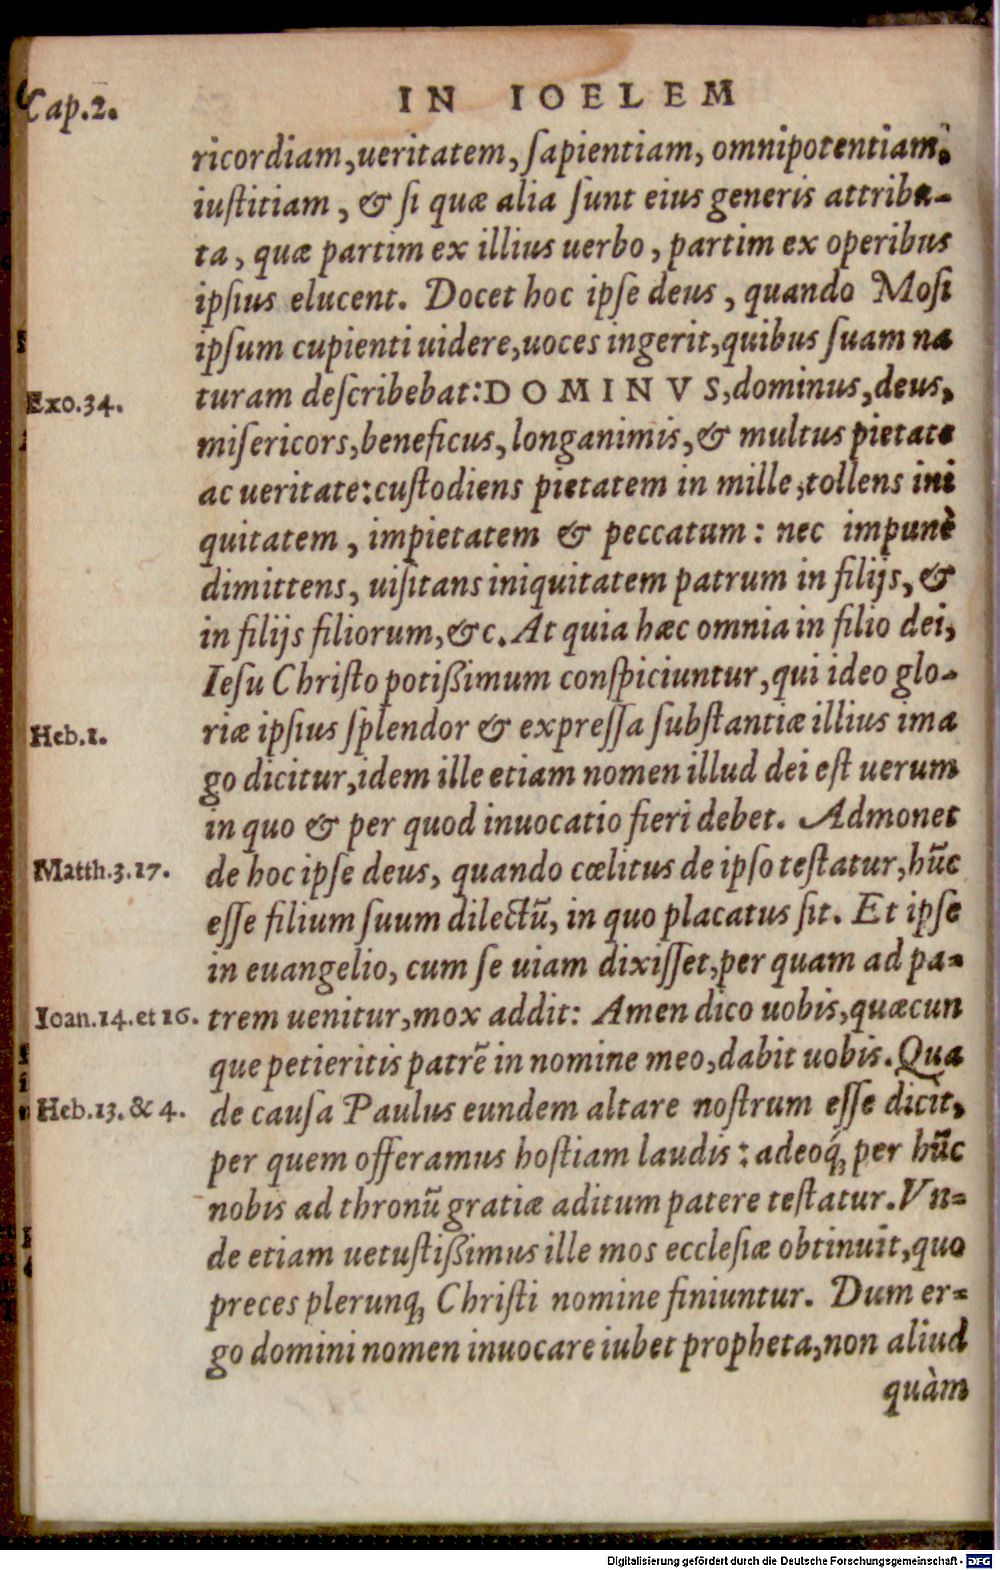 Cap.2.
IN IOELEM
ricordiam,ueritatem, ſapientiam, omnipotentiam,
iuſtitiam, & ſi quæ alia ſunt eius generis attribu-
ta, quæ partim ex illius uerbo, partim ex operibus
ipſius elucent. Docet hoc ipſe deus, quando Moſi
ipſum cupienti uidere,uoces ingerit,quibus ſuam na
Exo.34.
turam deſcribebat:DOMINVS,dominus,deus,
miſericors,beneficus,longanimis,& multus pietate
ac ueritate:cuſtodiens pietatem in mille,tollens ini
quitatem, impietatem & peccatum: nec impunè
dimittens, uiſitans iniquitatem patrum in filijs, &
in filijs filiorum,&c. At quia hæc omnia in filio dei,
Ieſu Chriſto potißimum conſpiciuntur,qui ideo glo-
Heb.1.
riæ ipſius ſplendor & expreſſa ſubſtantiæ illius ima
go dicitur,idem ille etiam nomen illud dei eſt uerum
in quo & per quod inuocatio fieri debet. Admonet
Matth.3.17.
de hoc ipſe deus, quando cœlitus de ipſo teſtatur,hũc
eſſe filium ſuum dilectũ, in quo placatus ſit. Et ipſe
in euangelio, cum ſe uiam dixiſſet,per quam ad pa-
Ioan.14.et 16.
trem uenitur,mox addit: Amen dico uobis,quæcun
que petieritis patrẽ in nomine meo,dabit uobis. Qua
Heb.13. & 4.
de cauſa Paulus eundem altare noſtrum eſſe dicit,
per quem offeramus hoſtiam laudis: adeoq́; per hũc
nobis ad thronũ gratiæ aditum patere teſtatur. Vn-
de etiam uetuſtißimus ille mos eccleſiæ obtinuit,quo
preces plerunq; Chriſti nomine finiuntur. Dum er-
go domini nomen inuocare iubet propheta,non aliud
quàm
Digitalisierung gefördert durch die Deutsche Forschungsgemeinschaft - DFG